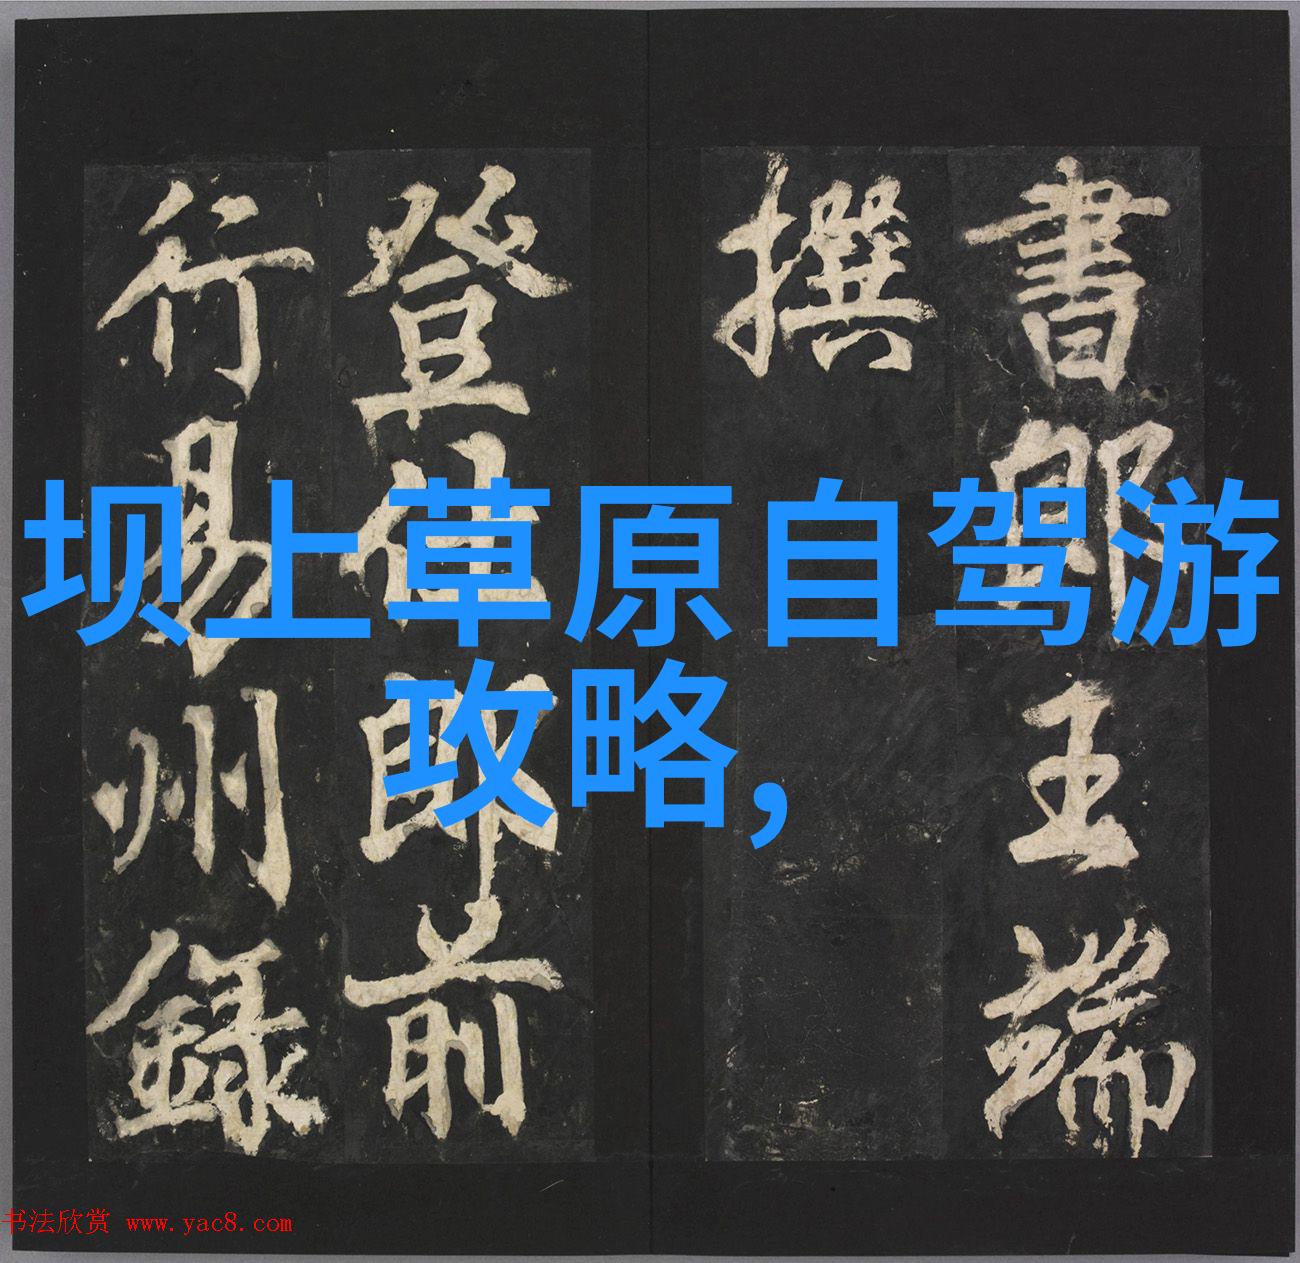 坝上草原自驾游
攻略,
書郎王端
撰
登仕郎前
行易州録
书法欣赏 www.yac8.com